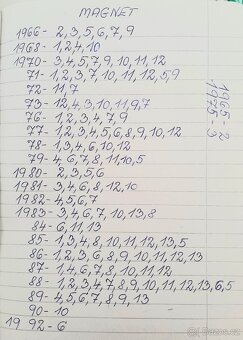 MAGNET
1966- 2,3,5,6,7,9
1968- 1,2,4,10
1970- 3,4,5,7,9,10,11,12
71- 1,2,3,7,10,11,12,5,9
72- 11,7
73- 12,4,3,10,11,9,7
76- 1,2,3,4,7,9
77- 1,2,3,4,5,6,8,9,10,12
78- 1,3,4,6,10,12
79- 4,6,7,8,11,10,5
1980- 2,3,5,6
1981- 3,4,6,8,12,10
1982- 4,5,6,7
1983- 3,4,6,7,10,13,8
84- 6,11,13
85- 1,3,4,8,10,11,12,13,5
86- 1,2,3,6,8,9,10,11,12,13
87- 1,4,6,7,8,10,11,12
88- 1,2,3,4,7,8,9,10,11,12,13,6,5
89- 4,5,6,7,8,9,13
90- 10
1992- 6
1965- 2
1975- 3